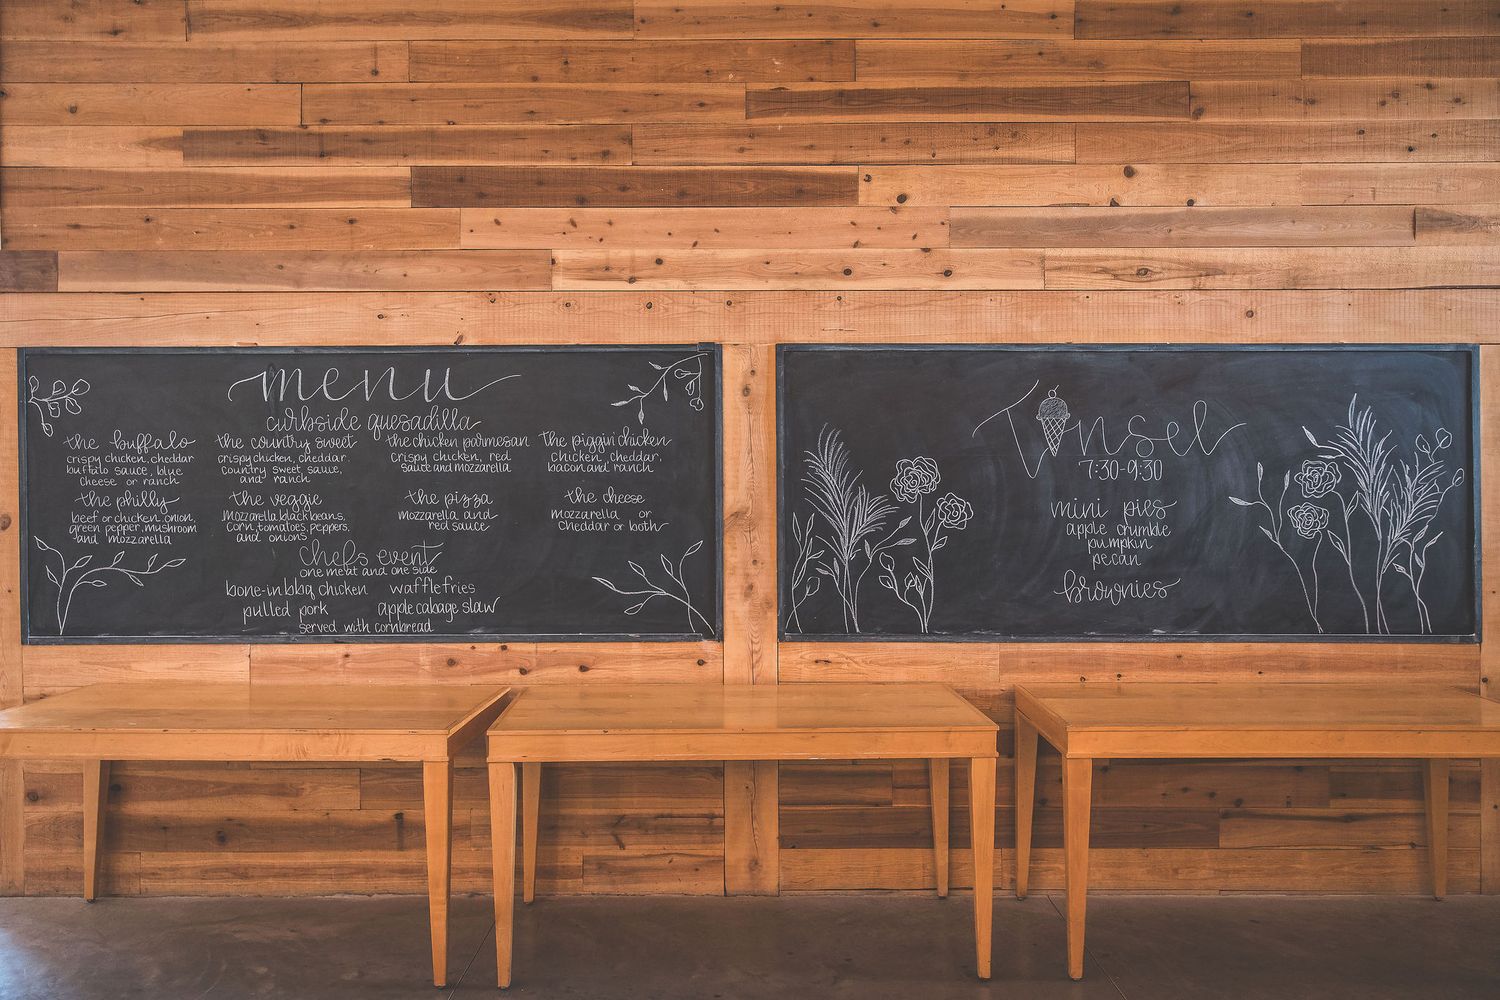 menu
curbside quesadilla
the buffalo
crispy chicken, cheddar
buffalo sauce, blue
cheese or ranch
the country sweet
crispy chicken, cheddar,
country sweet sauce,
and ranch
the chicken parmesan
crispy chicken, red
sauce and mozzarella
the piggin' chicken
chicken, cheddar,
bacon and ranch
the philly
beef or chicken, onion,
green pepper, mushroom
and mozzarella
the veggie
mozzarella, black beans,
corn, tomatoes, peppers,
and onions
the pizza
mozzarella and
red sauce
the cheese
mozzarella or
cheddar or both
chefs event
one meat and one side
bone-in bbq chicken waffle fries
pulled pork apple cabage slaw
served with cornbread
Tinsel
7:30-9:30
mini pies
apple crumble
pumpkin
pecan
brownies